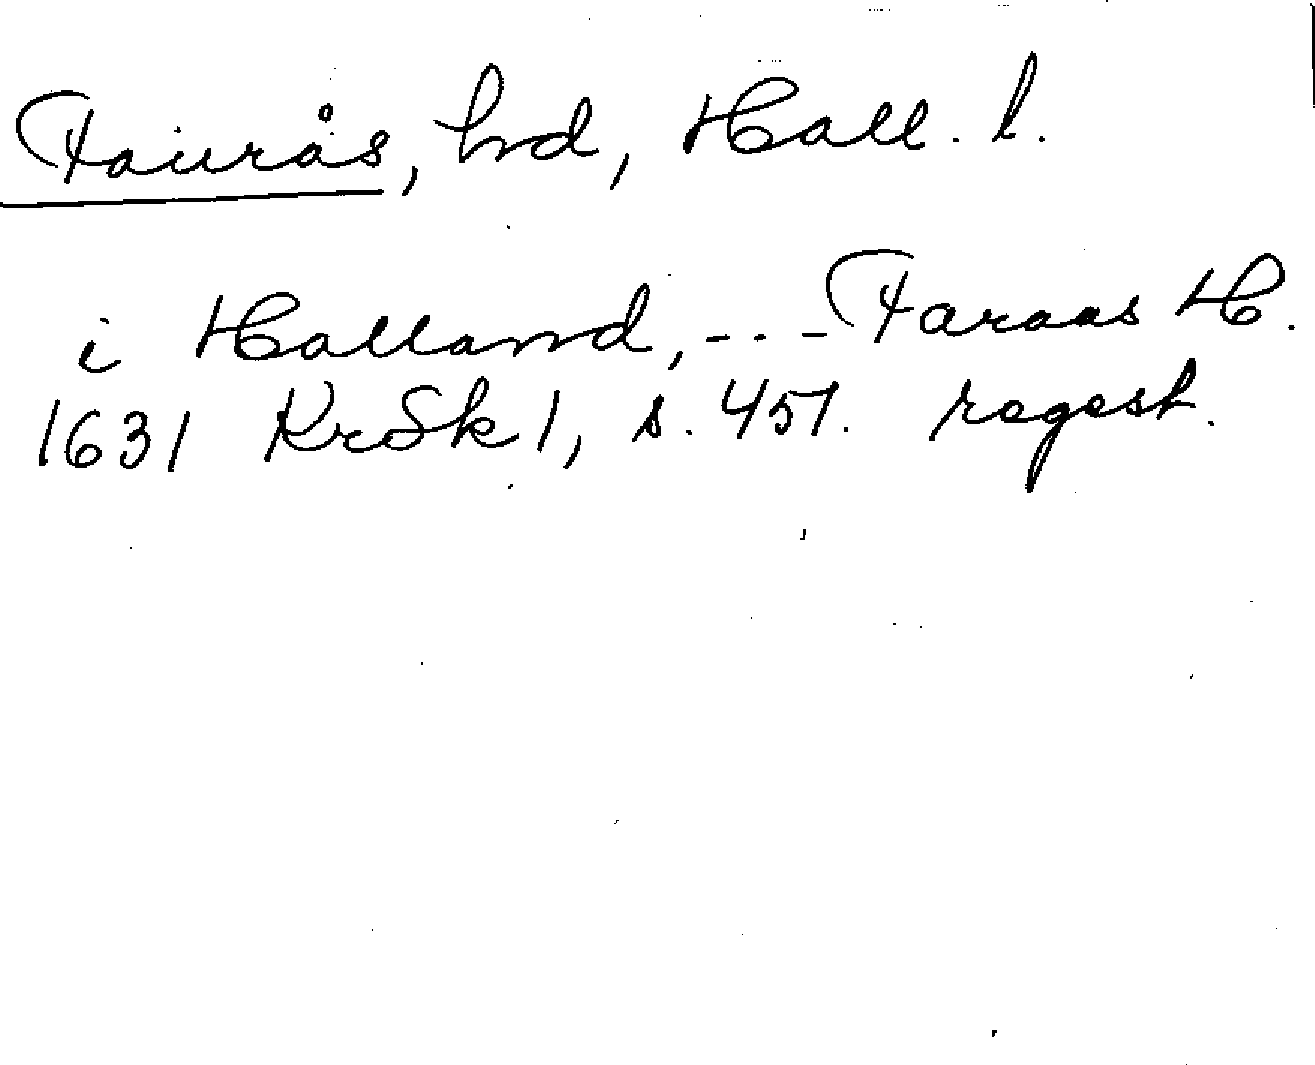 Faurås, hrd, Hall. l.
i Halland, --- Faraas H.
1631 KrSk 1, s. 457. regest.